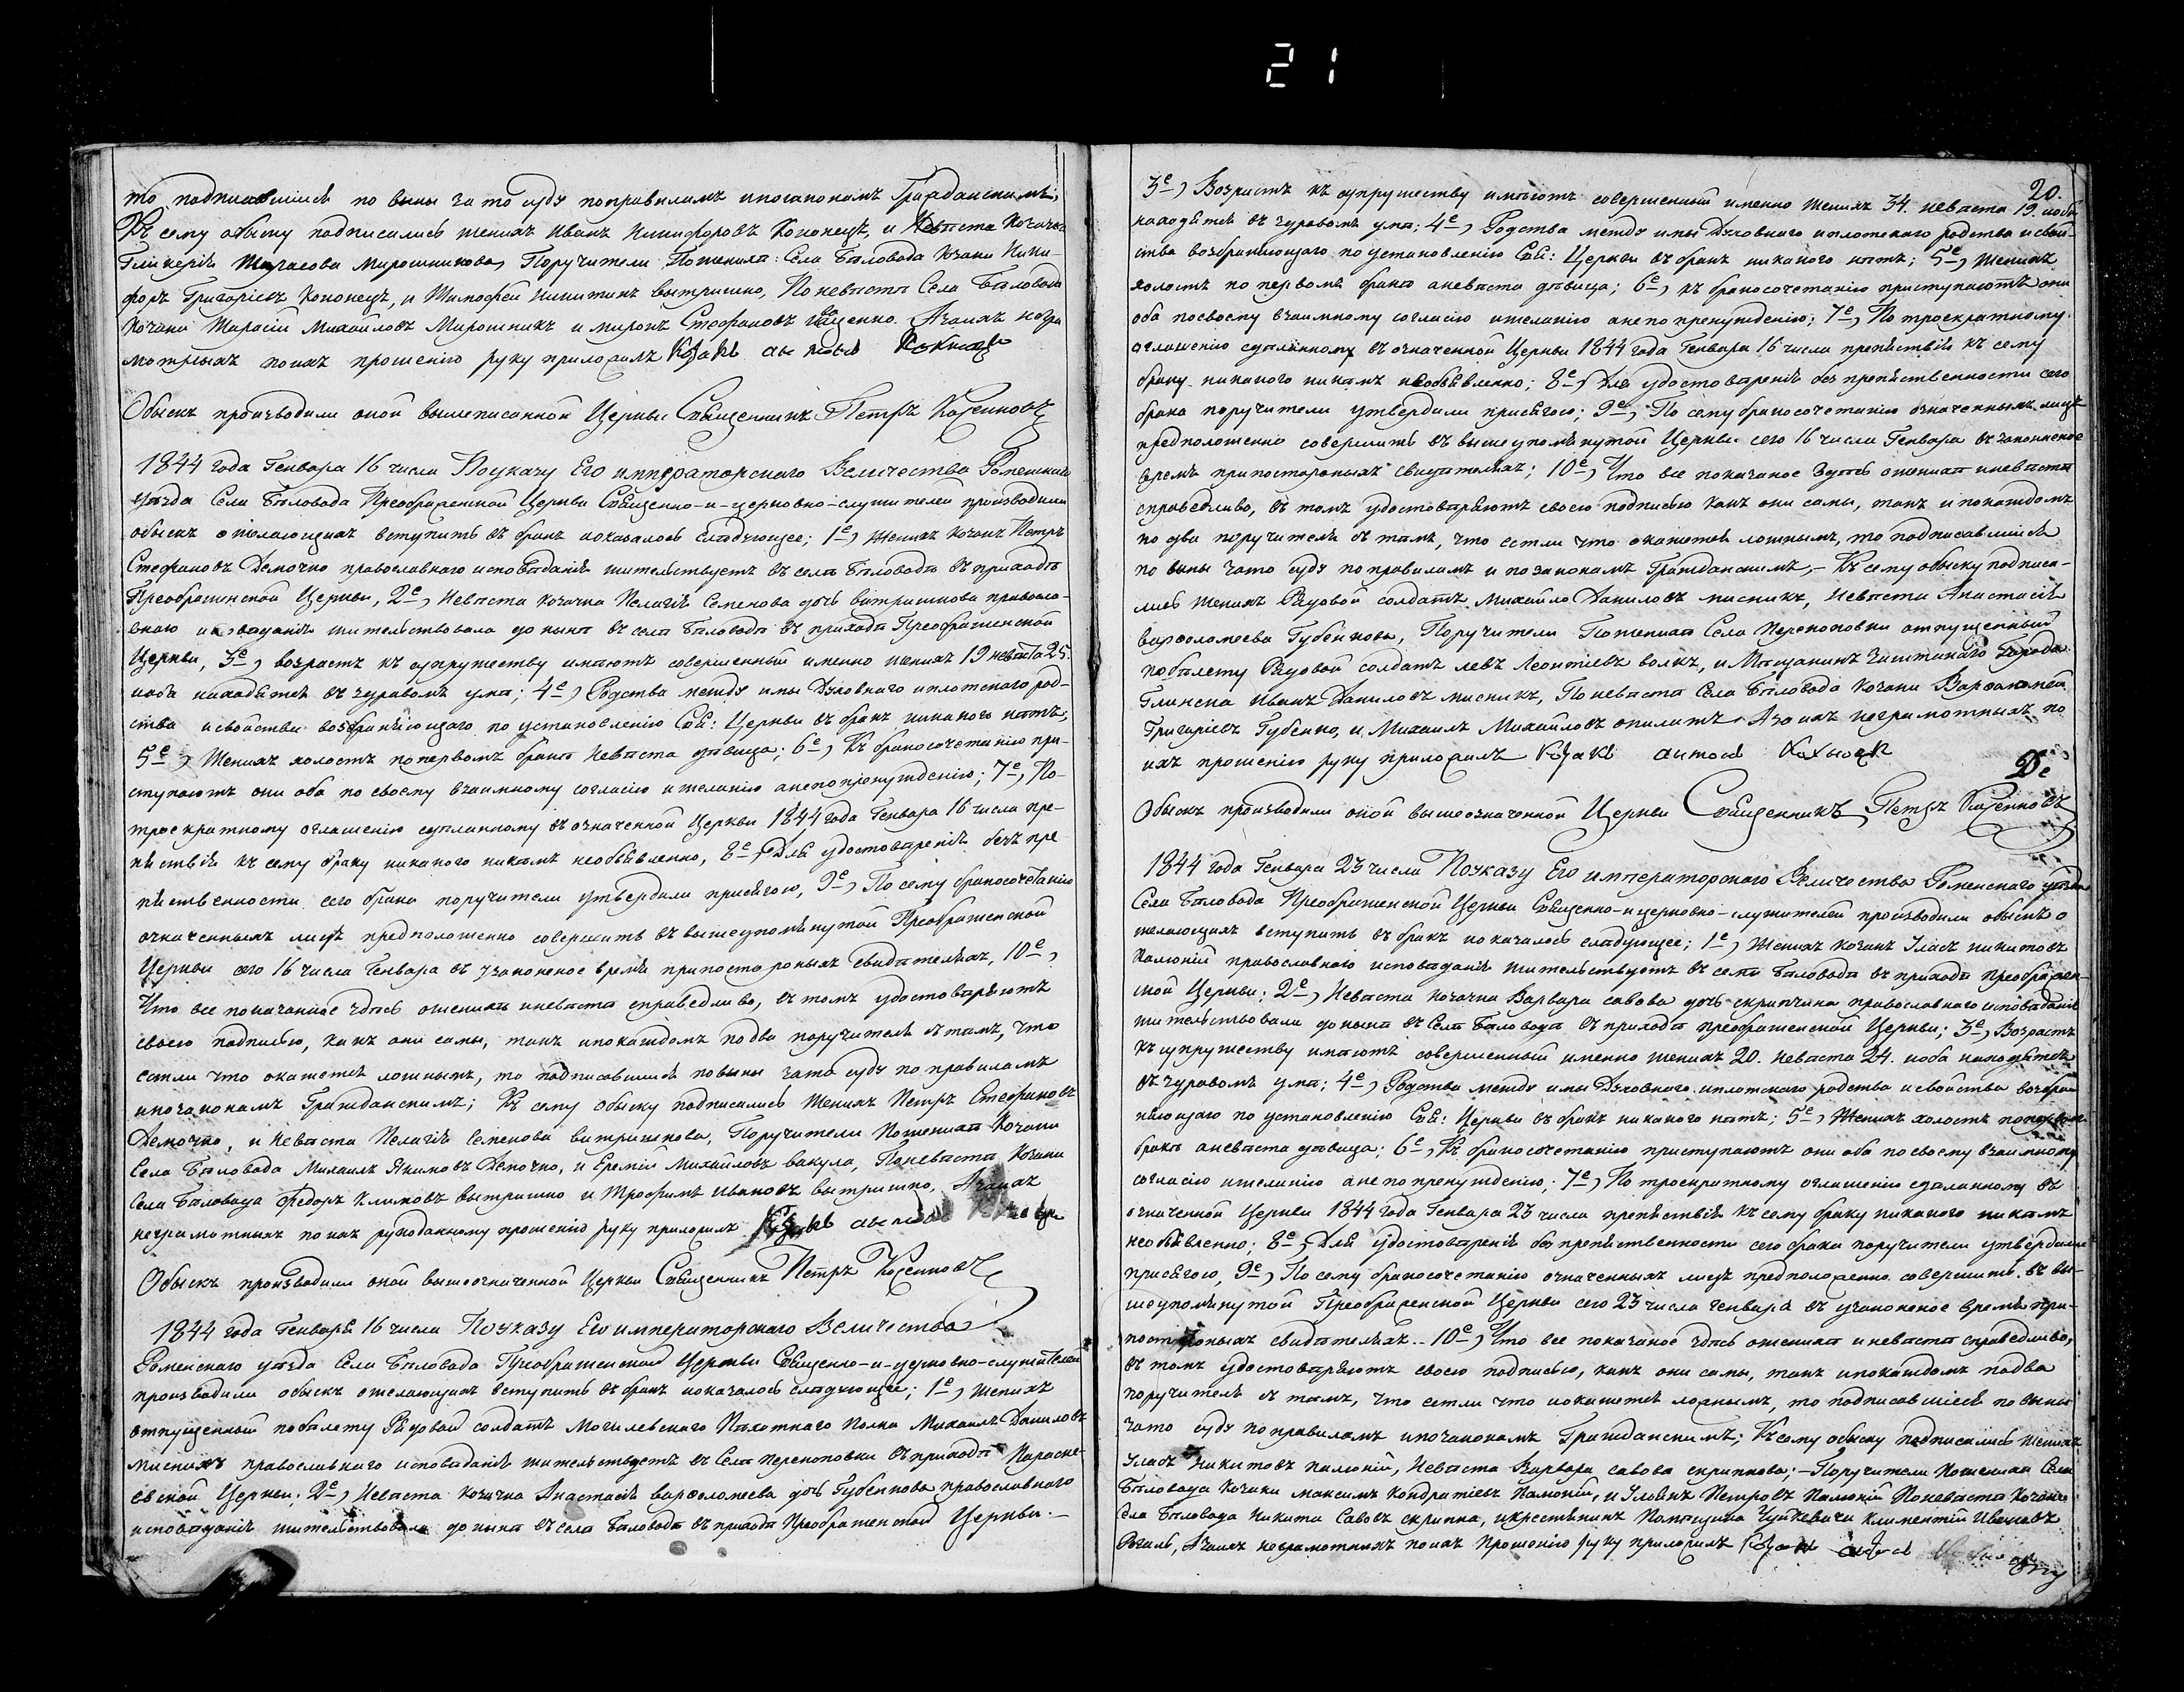 21
то подписавшіися по вины зато суду поправиламъ ипозаконамъ Гражданскимъ;
Къ сему обыску подписались женихъ Иванъ Никифоровъ Кононецъ, и Невѣста козачка
Гликерія Тарасова Мирошникова, Поручители Поженихѣ: Села Бѣловода козаки Ники-
форъ Григоріевъ Кононецъ, и Тимофей Никитинъ вытришко, Поневѣсты Села Бѣловода
Козаки Тарасій Михайловъ Мирошникъ и миронъ Стефановъ Азаихъ негра
мотныхъ поихъ прошенію руку приложилъ Козакъ
Обыскъ производили оной вышеписанной Церкви Священникъ Петръ
1844 года Генваря 16 числа Поуказу Его императорскаго Величества Роменскаго
уѣзда Села Бѣловода Преображенской Церкви Священно-и-церковно-служителей производили
обыскъ ожелающихъ вступить въ бракъ ипоказалось слѣдующее; 1е, женихъ козакъ Петръ
Стефановъ Демочко православнаго исповѣданія жительствуетъ въ селѣ Бѣловодѣ въ приходѣ
Преображенской Церкви, 2е, Невѣста козачка Пелагія Семенова дочь витришкова правосла-
внаго исповѣданія жительствовала донынѣ въ селѣ Бѣловодѣ въ приходѣ Преображенской
Церкви, 3е, возрастъ къ супружеству имѣютъ совершенный именно женихъ 19 невѣста 25.
иоба находятся въ здравомъ умѣ; 4е, Родства между ими Духовнаго иплотскаго род-
ства исвойства возбраняющаго по установленію Свя: Церкви въ бракъ никакого нѣтъ;
5е, Женихъ холостъ попервомъ бракѣ Невѣста дѣвица; 6е, Къ бракосочетанію при-
ступаютъ они оба по своему взаимному согласію ижеланію анепопринужденію; 7е, По-
троекратному оглашенію сдѣланному въ означенной Церкви 1844 года Генваря 16 числа пре-
пятствія къ сему браку никакого никѣмъ необъявленно, 8е, Для удостовѣренія безъ пре
пятственности сего брака поручители утвердили присягою, 9е, По сему бракосочетанію
означеннымъ лицъ предположенно совершить въ вышеупомянутой Преображенской
Церкви сего 16 числа Генваря въ узаконеное время припостороныхъ свидѣтеляхъ, 10е,
Что все показанное здѣсь оженихѣ иневѣстѣ справедливо, въ томъ удостовѣряютъ
своею подписью, какъ они самы, такъ ипокаждомъ подва поручителя съ тѣмъ, что
естли что окажется ложнымъ, то подписавшіися повины зато суду по правиламъ
ипозаконамъ Гражданскимъ; Къ сему обыску подписались Женихъ Петръ Стефановъ
Демочко, и Невѣста Пелагія Семенова витришкова, Поручители Поженихѣ Козаки
Села Бѣловода Михаилъ Якимовъ Демочко, и Еремій Михайловъ вакула, Поневѣстѣ Козаки
Села Бѣловода Федоръ Климовъ вытришко и Трофимъ Ивановъ вытришко, Азаихъ
неграмотныхъ поихъ рукоданному прошенію руку приложилъ Козакъ
Обыскъ производили оной вышеозначенной Церкви Священникъ Петръ
1844 года Генваря 16 числа Поуказу Его императорскаго Величества
Роменскаго уѣзда Села Бѣловода Преображенской Церкви Священно-и-церковно-служителей
производили обыскъ ожелающихъ вступить въ бракъ ипоказалось слѣдующее; 1е, женихъ
отпущенный побѣлету Рядовой солдатъ Могилевскаго Пѣхотнаго Полка Михаилъ Даниловъ
мисникъ православнаго исповѣданія жительствуетъ въ Селѣ Перекоповки въ приходѣ Параске-
евской Церкви; 2е, Невѣста козачка Анастасія варфоломеева дочь Губенкова православнаго
исповѣданія жительствовала донынѣ въ селѣ Бѣловодѣ въ приходѣ Преображенской Церкви.-
20.
3е, Возрастъ къ супружеству имѣютъ совершенный именно женихъ 34. невѣста 19. иоба
находятся въ здравомъ умѣ; 4е, Родства между ими Духовнаго иплотскаго родства исвой-
ства возбраняющаго по установленію Свя: Церкви въ бракъ никакого нѣтъ; 5е, женихъ
холостъ по первомъ бракѣ аневѣста дѣвица; 6е, къ бракосочетанію приступаютъ они
оба посвоему взаимному согласію ижеланію анепопринужденію; 7е, По троекратному
оглашенію сдѣланному въ означенной Церкви 1844 года Генваря 16 числа препятствія къ сему
браку никакого никѣмъ необъявленно; 8е, Для удостовѣренія без препятственности сего
брака поручители утвердили присягою; 9е, По сему бракосочетанію означенныхъ лицъ
предположенно совершить въ вышеупомянутой Церкви сего 16 числа Генваря въ законное
время припостороныхъ свидѣтеляхъ; 10е, Что все показаное здѣсь оженихѣ иневѣстѣ
справедливо, въ томъ удостовѣряютъ своею подписью какъ они самы, такъ и покаждомъ
по два поручителя съ тѣмъ, что естли что окажется ложнымъ, то подписавшіися
по вины зато суду поправиламъ и позаконамъ Гражданскимъ,- Къ сему обыску подписа-
лись женихъ Рядовой солдатъ Михайло Даниловъ мисникъ, Невѣста Анастасія
варфоломеева Губенкова, Поручители Поженихѣ Села Перекоповки отпущенный
побѣлету Рядовой солдатъ левъ Леонтіевъ волкъ, и Мѣщанинъ Заштатнаго Города
Глинска Иванъ Даниловъ мисникъ, Поневѣстѣ Села Бѣловода Козаки Варфоломей
Григоріевъ Губенко, и Михаилъ Михайловъ Азаихъ неграмотныхъ по
ихъ прошенію руку приложилъ Козакъ
Обыскъ производили оной вышеозначенной Церкви Священникъ Петръ
1844 года Генваря 23 числа Поуказу Его императорскаго Величества Роменскаго уѣзда
Села Бѣловода Преображенской Церкви Священно-и церковно-служителей производили обыскъ о
желающихъ вступить въ бракъ ипоказалось слѣдующее; 1е, Женихъ козакъ Уласъ никитовъ
Палюхій православнаго исповѣданія жительствуетъ въ селѣ Бѣловодѣ въ приходѣ преображен-
ской Церкви; 2е, Невѣста козачка Варвара савова дочь скрипчина православнаго исповѣданія
жительствовала донынѣ въ Селѣ Бѣловодѣ въ приходѣ преображенской Церкви; 3е, Возрастъ
къ супружеству имѣютъ совершенный именно женихъ 20. невѣста 24. иоба находятся
въ здравомъ умѣ; 4е, Родства между ими Духовнаго иплотскаго родства исвойства возбра
няющаго по установленію Свя: Церкви въ бракъ никакого нѣтъ; 5е, Женихъ холостъ попервом
бракѣ аневѣста дѣвица; 6е, Къ бракосочетанію приступаютъ они оба посвоему взаимному
согласію ижеланію анепопринужденію; 7е, По троекратному оглашенію сдѣланному въ
означенной Церкви 1844 года Генваря 23 числа препятствія къ сему браку никакого никѣмъ
необъявленно; 8е, Для удостовѣренія без препятственности сего брака поручители утвердили
присягою, 9е, По сему бракосочетанію означенныхъ лицъ предположенно совершить въ вы-
шеупомянутой Преображенской Церкви сего 23 числа Генваря въ узаконеное время при-
постороныхъ свидѣтеляхъ.- 10е, Что все показаное здѣсь оженихѣ иневѣстѣ справедливо,
въ томъ удостовѣряютъ своею подписью, какъ они самы, такъ ипокаждомъ подва
поручителя съ тѣмъ, что естли что покажется ложнымъ, то подписавшіеся повины
зато суду поправиламъ ипозаконамъ Гражданскимъ; Къ сему обыску подписались женихъ
Уласъ Никитовъ палюхій, Невѣста Варвара савова скрипкова;- Поручители Поженихѣ Села
Бѣловода Козаки максимъ Кондратіевъ Палюхій, и Петровъ Палюхій Поневѣстѣ Козаки
Села Бѣловода Никита Савовъ скрипка, икрестьянинъ Помѣщика Климентій Ивановъ
Азаихъ неграмотныхъ поихъ Прошенію руку приложилъ Козакъ